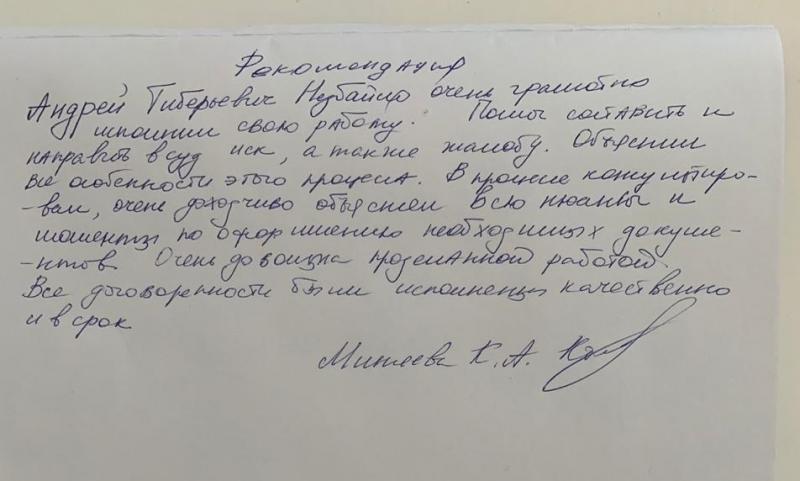 Рекомендация
Андрей Тиберьевич очень грамотно
исполнил свою работу. Помог составить и
направить в суд иск, а также жалобу. Объяснил
все особенности этого процесса. В процессе консультиро-
-вал, очень доходчиво объяснял все нюансы и
моменты по оформлению необходимых докуме-
-нтов. Очень довольна проделанной работой.
Все договоренности были исполнены качественно
и в срок
К. А.